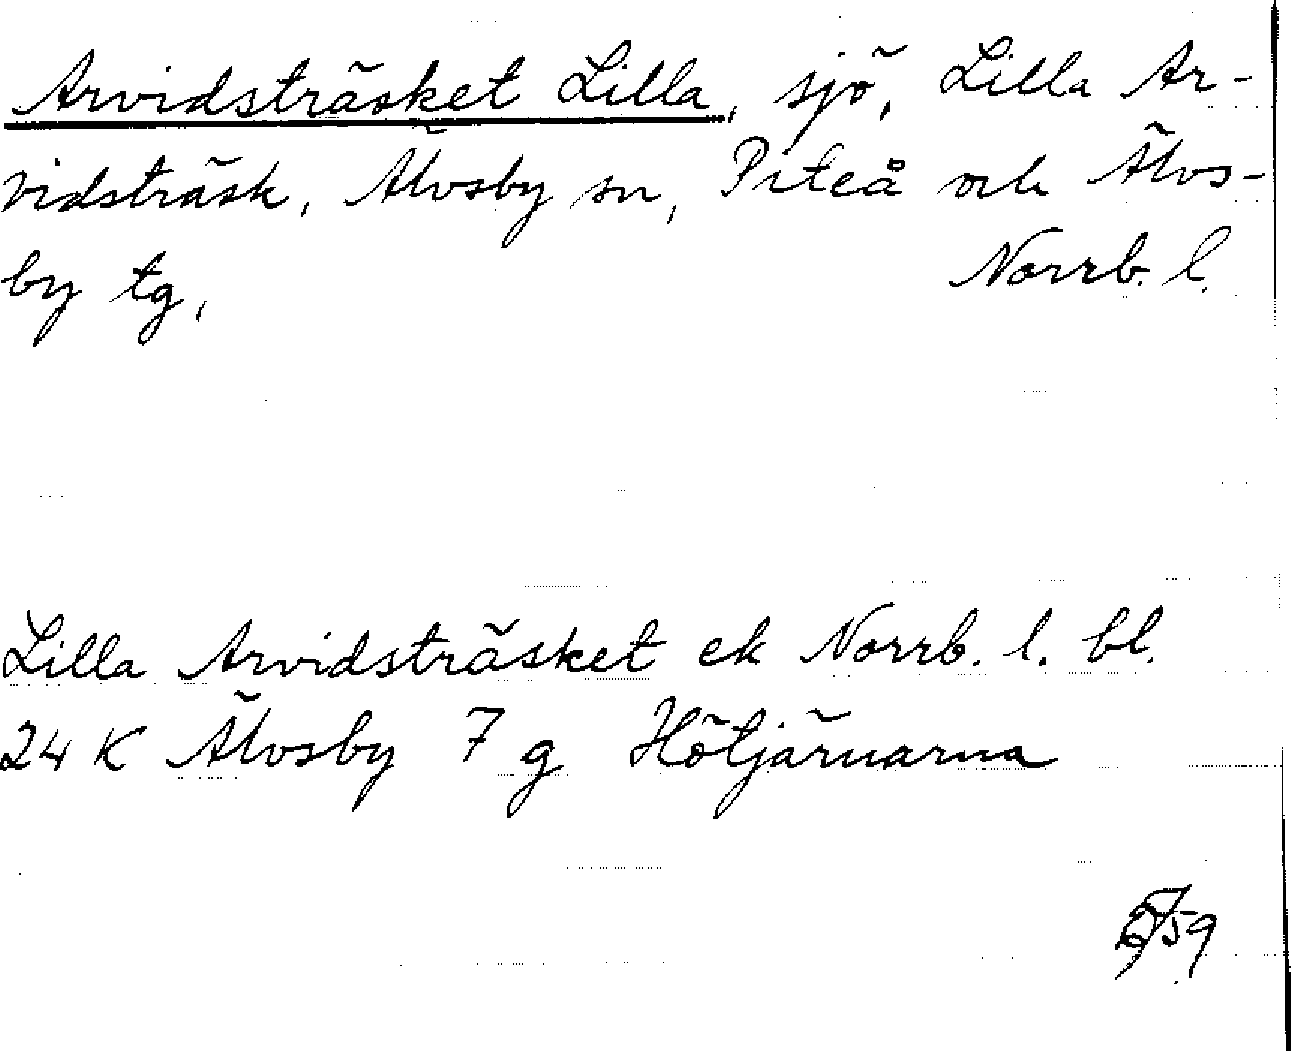 Arvidsträsket Lilla, sjö, Lilla Ar-
vidsträsk, Älvsby sn, Piteå och Älvs-
by tg, Norrb. l.
Lilla Arvidsträsket ek Norrb. l. bl.
24 K Älvsby 7 g Hötjärnarna
59